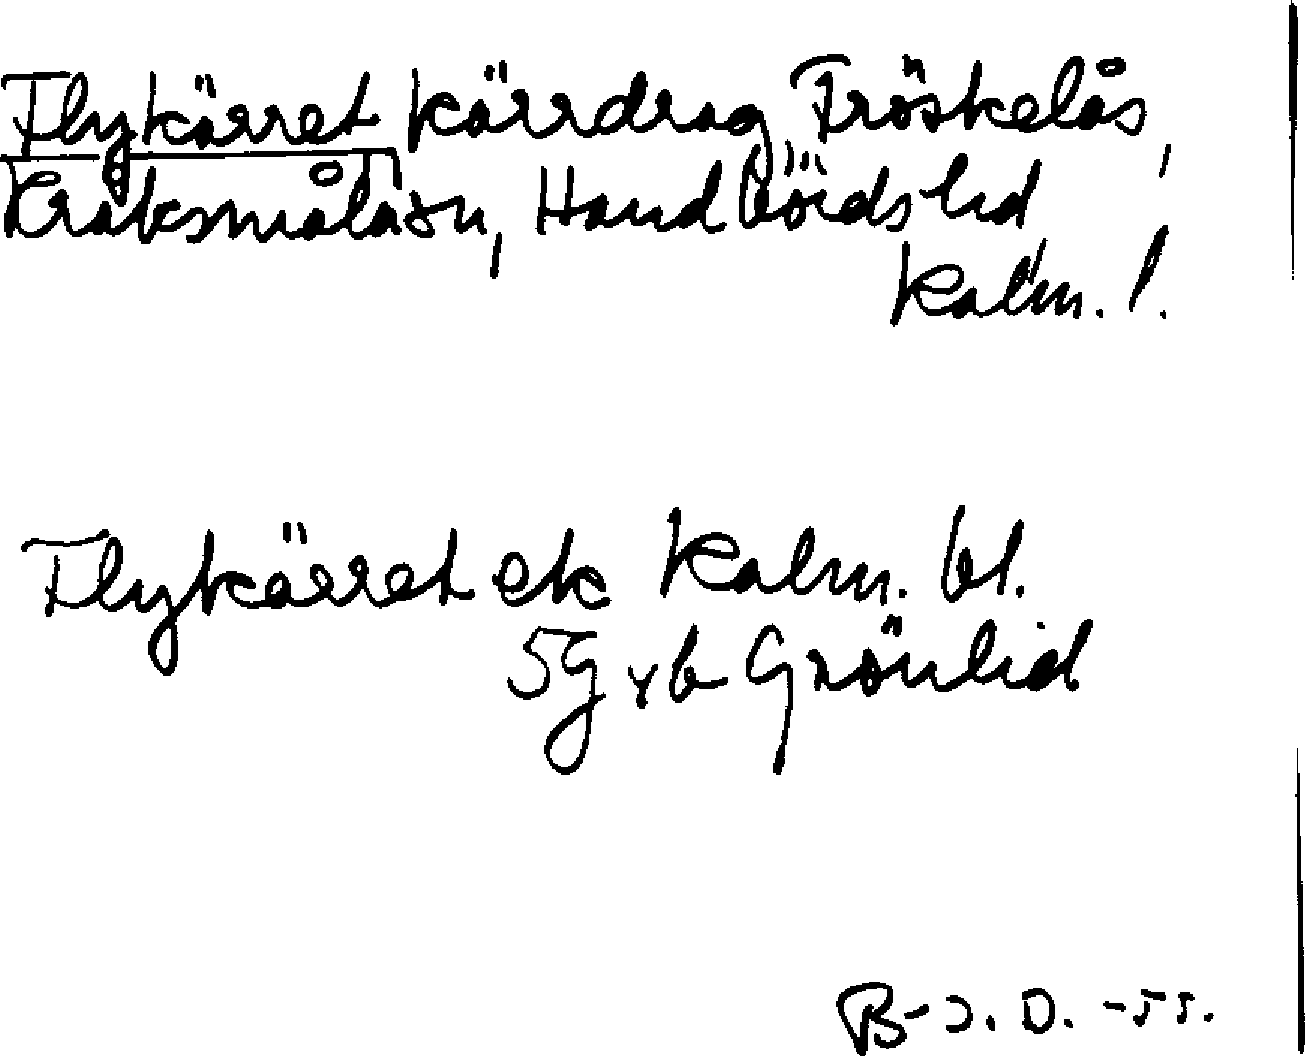 Flykärret kärrdrag Fröskelås,
Kråksmåla sn, Handbörds hd
Kalm. l.
Flykärret ek Kalm. bl.
5G vb Grönlid
B-J. D. -55.